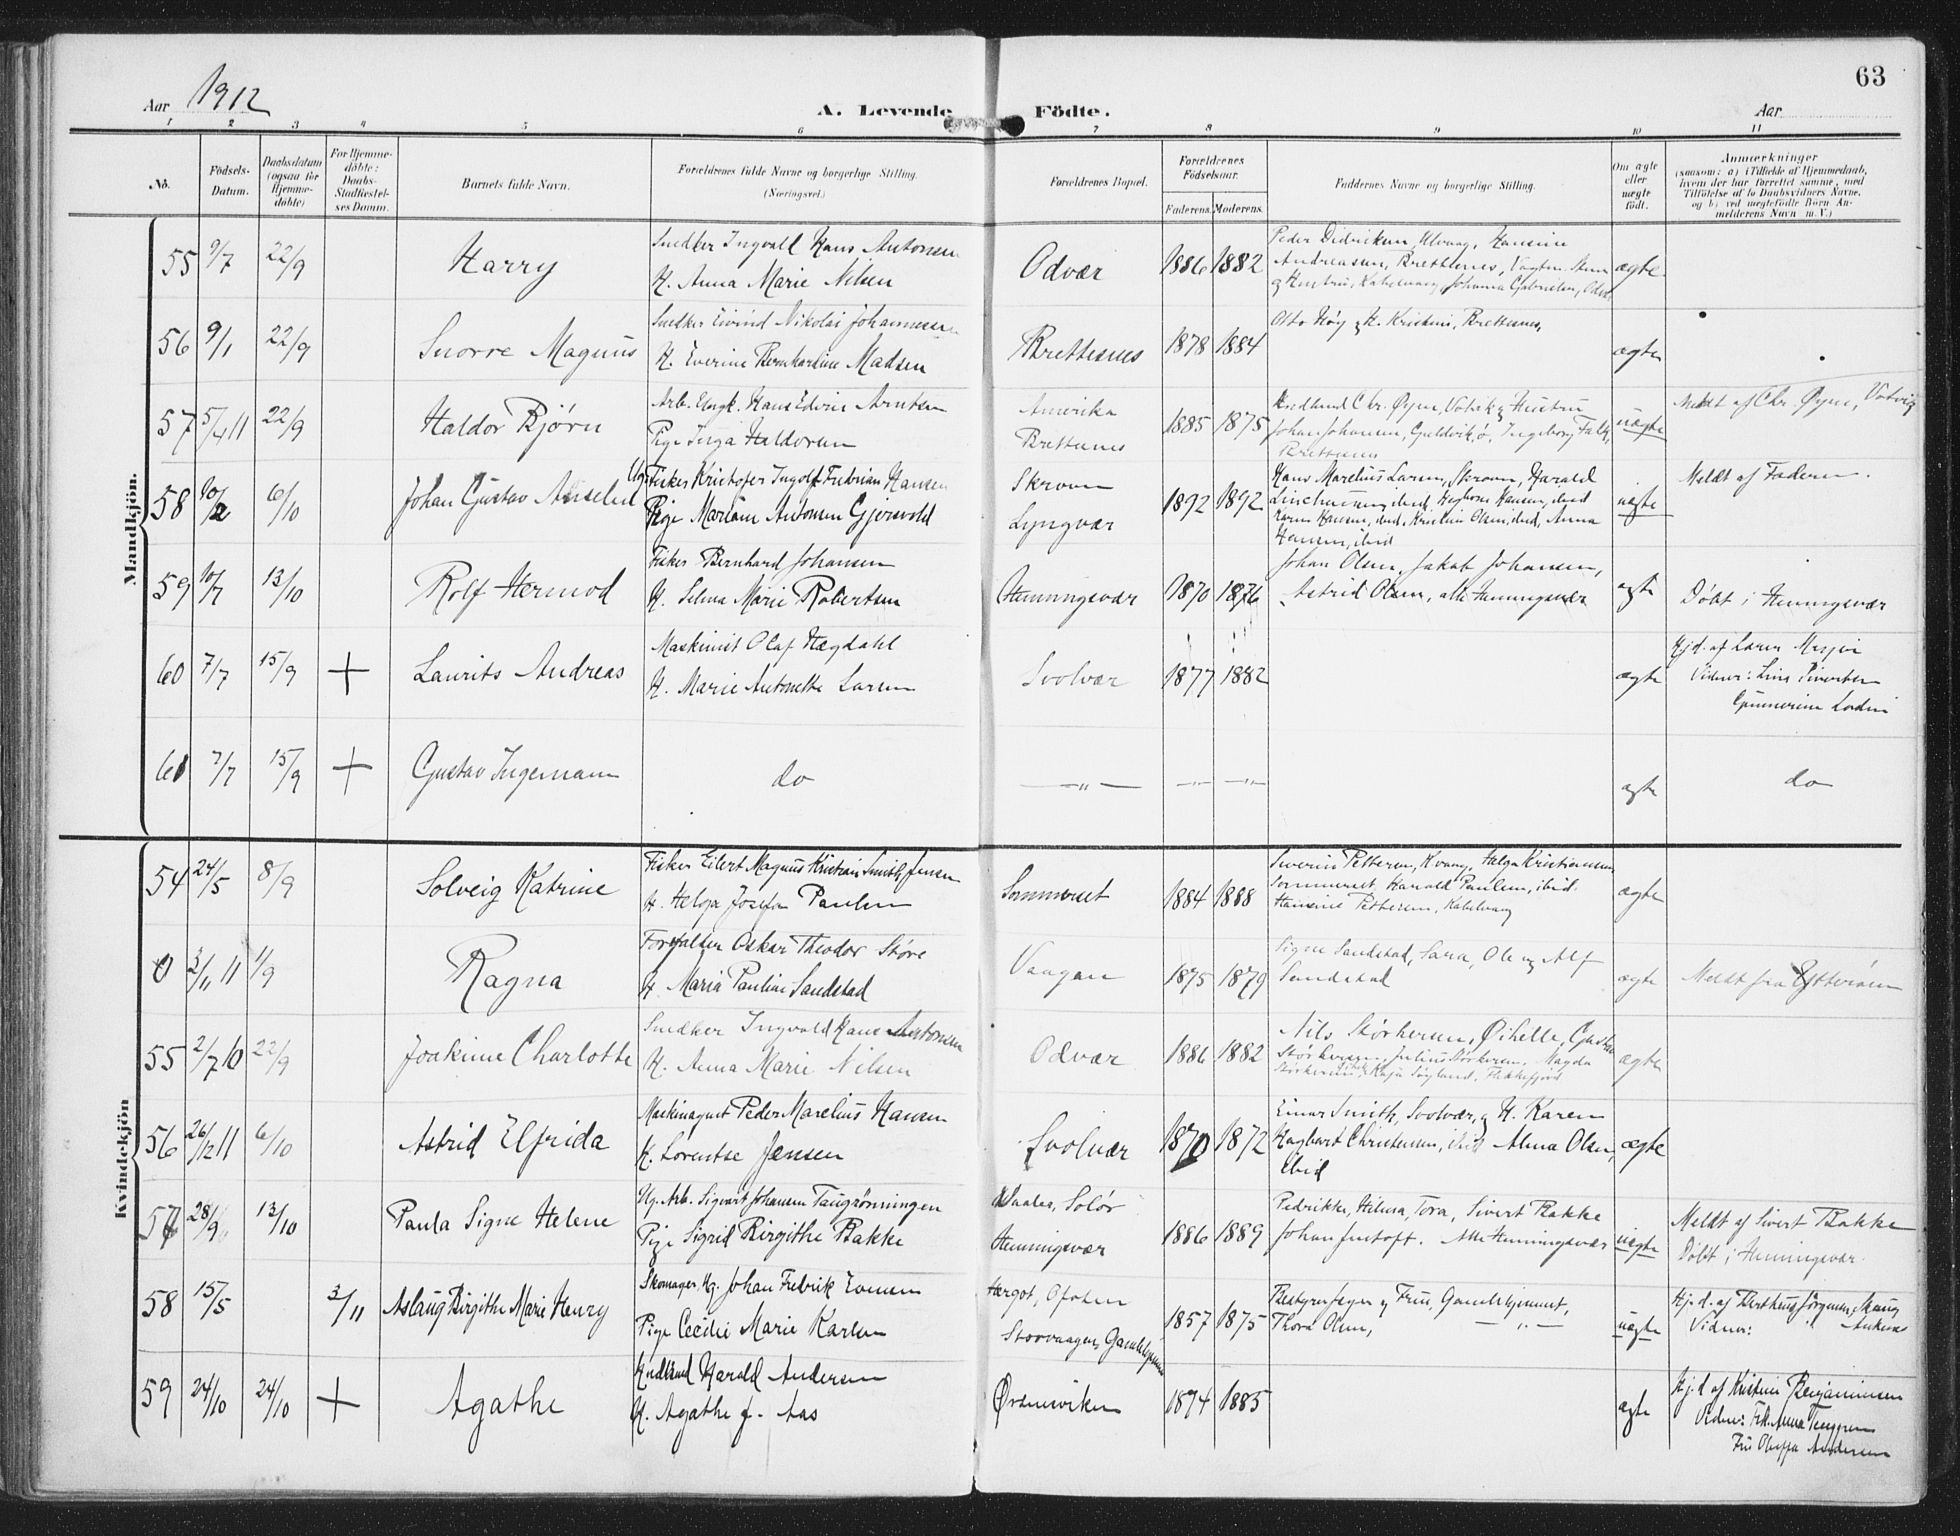 63
Aar 1912
A. Levende Födte.
Aar
1 2 3 4 5 6 7 8 9 10 11
No.
Födsels-
Datum.
Daabsdatum
(ogsaa for
Hjemme-
döbte)
For Hjemme-
döbte:
Daabs-
Stadfæstel-
ses Datum.
Barnets fulde Navn.
Forældrenes fulde Navne og borgerlige Stilling.
(Næringsvei.)
Forældrenes Bopæl.
Forældrenes
Födselsaar.
Faderens. Moderens.
Faddernes Navne og borgerlige Stilling.
Om ægte
eller
uægte
födt.
Anmærkninger
(saasom: a) i Tilfælde af Hjemmedaab,
hvem der har forrettet samme, med
Tilföielse af to Daabsvidners Navne,
og b) ved uægtefödte Börn An-
melderens Navn m. V.)
Mandkjön.
55 9/7 22/9 Harry
Snedker Ingvald Hans Antonsen
H. Anna Marie Nilsen
Odvær 1886 1882
Peder Didriksen, Ulvaag, Hansine
Andreassen, Brettesnes,
og Hustru, Kabelvaag, Johanna Gabrielsen, Odv.
ægte
56 9/1 22/9 Snorre Magnus
Snedker Eivind Nikolai Johannessen
H. Everine Bernhardine Madsen
Brettesnes 1878 1884
Otto Høg og H. Kristine, Brettesnes,
ægte
57 5/4 11 22/9 Haldor Bjørn
Arb. Ungk. Hans Edvin Arntsen
Pige Inga Haldorsen
Amerika
Brettesnes
1885 1875
Chr. Øyen, Votvik og Hustru
Johan Johansen, Ingeborg Falk,
Brettesnes
uægte
Meldt af Chr. Øyen, Votvig
58 10/2 6/10 Johan Gustav Anselm
Ug. Fisker Kristofer Ingolf Fabrian Hansen
Pige Mariane Antonsen Gjersvold
Skroven
Lyngvær
1892 1892
Hans Marelius Larsen, Skroven, Harald
ibid, Hansen, ibid
Karen Hansen, ibid, Kristine Olsen, ibid, Anna
Hansen, ibid
uægte
Meldt af Faderen.
59 10/7 13/10 Rolf Hermod
Fisker Bernhard Johansen
H. Selma Marie Robertsen
Henningsvær 1870 1876
Johan Olsen, Jakob Johansen,
Astrid Olsen, alle Henningsvær
ægte
Døbt i Henningsvær
60 7/7 15/9 + Laurits Andreas
Maskinist Olaf Hegdahl
H. Marie Antonette Larsen
Svolvær 1877 1882
ægte
Hjd. af Laura
Vidner: Lina Sivertsen
61 7/7 15/9 + Gustav Ingemann
do
—„— —„— —„—
ægte
do
Kvindekjön
54 24/5 8/9 Solveig Katrine
Fisker Eilert Magnus Kristian Smith Jensen
H. Helga Josefa Paulsen
Sommerset 1884 1888
Severin Pettersen, Helga Kristiansen
Sommerset, Harald Paulsen, ibid.
Hansine Pettersen, Kabelvaag
ægte
0 3/11 11 1/9 Ragna
Forvalter Oskar Theodor Støre
H. Maria Pauline Sandstad
Vaagan 1875 1879
Signe Sandstad, Sara, Ole og Alf
Sandstad
ægte
Meldt fra Ytterøen
55 2/7 10 22/9 Joakime Charlotte
Snedker Ingvald Hans Antonsen
H. Anna Marie Nilsen
Odvær 1886 1882
Nils Størkersen, Øihelle,
Størkersen, Julius Størkersen, Magda
Størkersen, Kaja Søyland, Flekkefjord
ægte
56 26/12 11 6/10 Astrid Elfrida
Peder Marelius Hansen
H. Lorentse Jensen
Svolvær 1870 1872
Einar Smith, Svolvær, og H. Karen
Hagbart Christensen, ibid Alma Olsen,
ibid
ægte
57 28/9 13/10 Paula Signe Helene
Ug. Arb. Sigvart Johansen Taugrønningen
Pige Sigrid Birgithe Bakke
Vaaler, Solør
Henningsvær
1886 1889
Pedrikke, Hilma, Tora, Sivert Bakke
Johan Alle Henningsvær
uægte
Meldt af Sivert Bakke
Døbt i Henningsvær.
58 15/5 3/11 Aslaug Birgithe Marie Henry
Skomager, Ug. Johan Fredrik Evensen
Pige Cecilie Marie Karlsen
Ofoten
Storvaagen, Gamlehjemmet
1857 1875
og Frue, Gamlehjemmet,
Thora Olsen, —„—
uægte
Hj.d. af Jørgensen
Vidner: „
59 24/10 24/10 + Agathe
Harald Andersen
H. Agathe f. Aas
Ørsnesviken 1874 1885
ægte
Hj.d. af Kristine Benjaminsen
Vidner: Frk. Anna
Fru Andersen